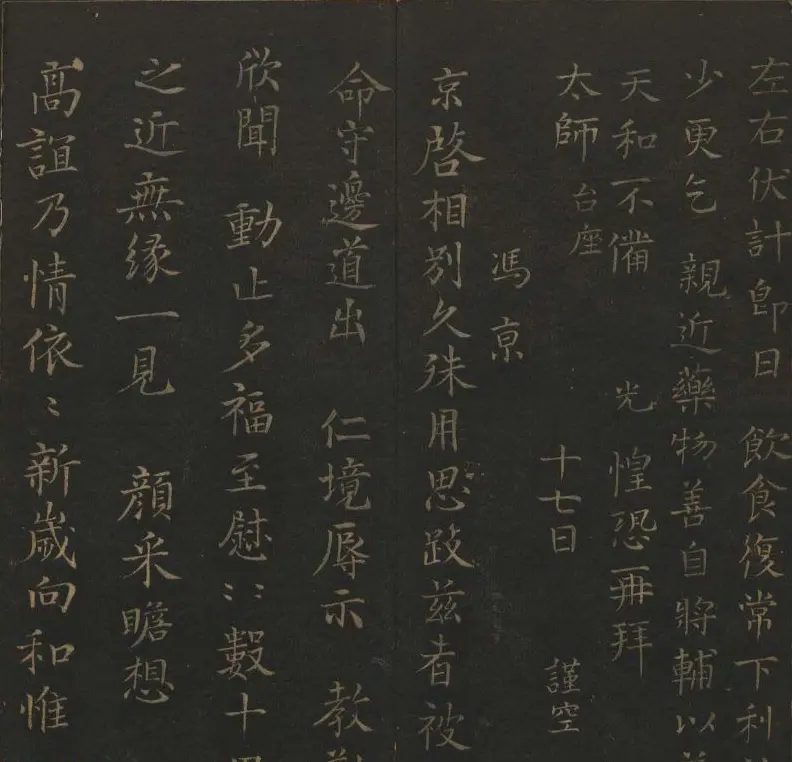 左右伏計即日 飲食復常下利
少更乞 親近藥物善自將輔以
天和不備 光 惶恐再拜
太師 台座 十七日 謹空
馮京
京啓相別久殊用思跂茲者被
命守邊道出 仁境辱示 教
欣聞 動止多福至慰〻數十
之近無緣一見 顏采瞻想
高誼乃情依〻新歲向和惟